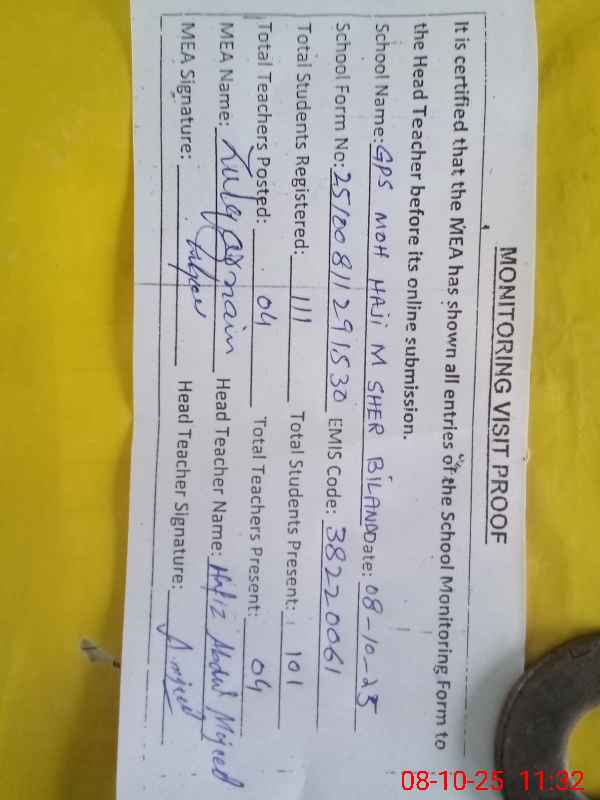 MONITORING VISIT PROOF
It is certified that the MEA has shown all entries of the School Monitoring Form to
the Head Teacher before its online submission.
School Name: GPS MOH HAJI M SHER BILAND Date: 08-10-25
School Form No: 25100811291530 EMIS Code: 38220061
Total Students Registered: 111 Total Students Present: 101
Total Teachers Posted: 04 Total Teachers Present: 04
MEA Name: Zulqarnain Head Teacher Name: Hafiz Abdul Majeed
MEA Signature: Head Teacher Signature: Amjeed
08-10-25 11:32